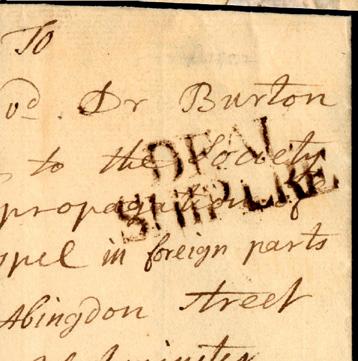 To
vd. Dr Burton
to the Society
propagation of
spel in foreign parts
Abingdon street
DEAL
SHIP LRE